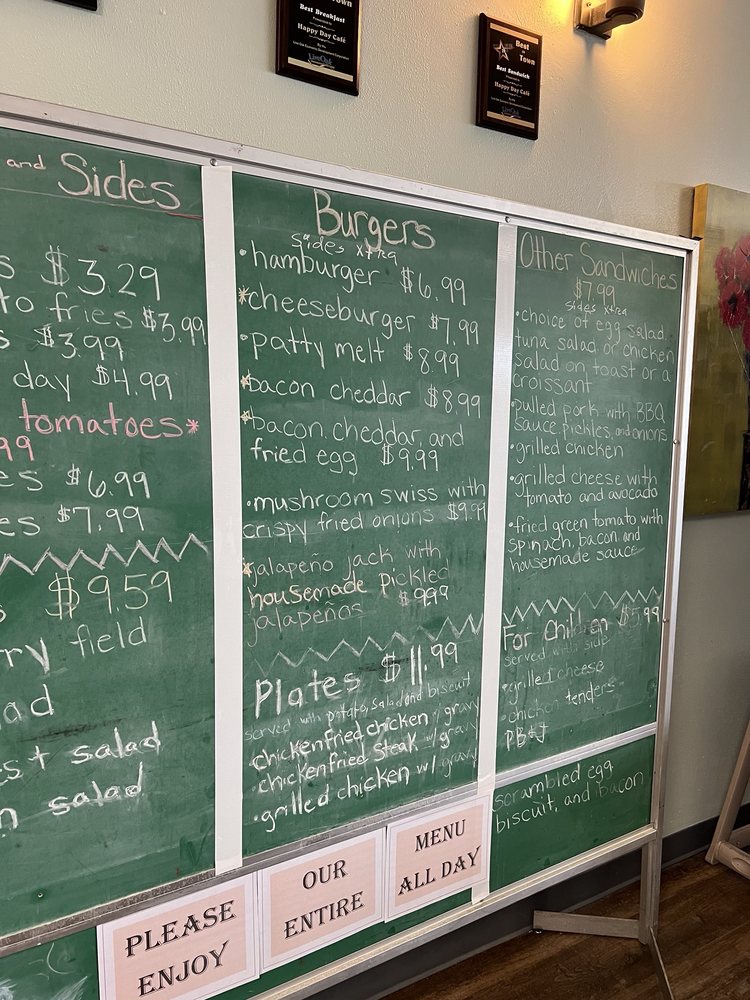 Town
Best Breakfast
Presented to
Happy Day Café
By the
Live Oak Economic Development Corporation
LiveOak
Best
in
Town
Best Sandwich
Presented to
Happy Day Café
By the
Live Oak Economic Development Corporation
LiveOak
and Sides
s $3.29
to fries $3.99
s $3.99
day $4.99
tomatoes*
99
es $6.99
es $7.99
s $9.59
rry field
ad
st salad
n salad
Burgers
sides xtra
•hamburger $6.99
*cheeseburger $7.99
•patty melt $8.99
*bacon cheddar $8.99
*bacon, cheddar, and
fried egg $9.99
•mushroom swiss with
crispy fried onions $9.99
*jalapeño jack with
housemade pickled
jalapeños $9.99
Plates $11.99
served with potato, salad and biscuit
•chickenfried chicken w/ gravy
•chickenfried steak w/ gravy
•grilled chicken w/ gravy
Other Sandwiches
$7.99
sides xtra
•choice of egg salad,
tuna salad or chicken
salad on toast or a
croissant
•pulled pork with BBQ
sauce pickles, and onions
•grilled chicken
•grilled cheese with
tomato and avocado
•fried green tomato with
spinach, bacon and
housemade sauce
For Children $5.99
served with side
•grilled cheese
•chicken tenders
PB&J
scrambled egg
biscuit, and bacon
PLEASE
ENJOY
OUR
ENTIRE
MENU
ALL DAY